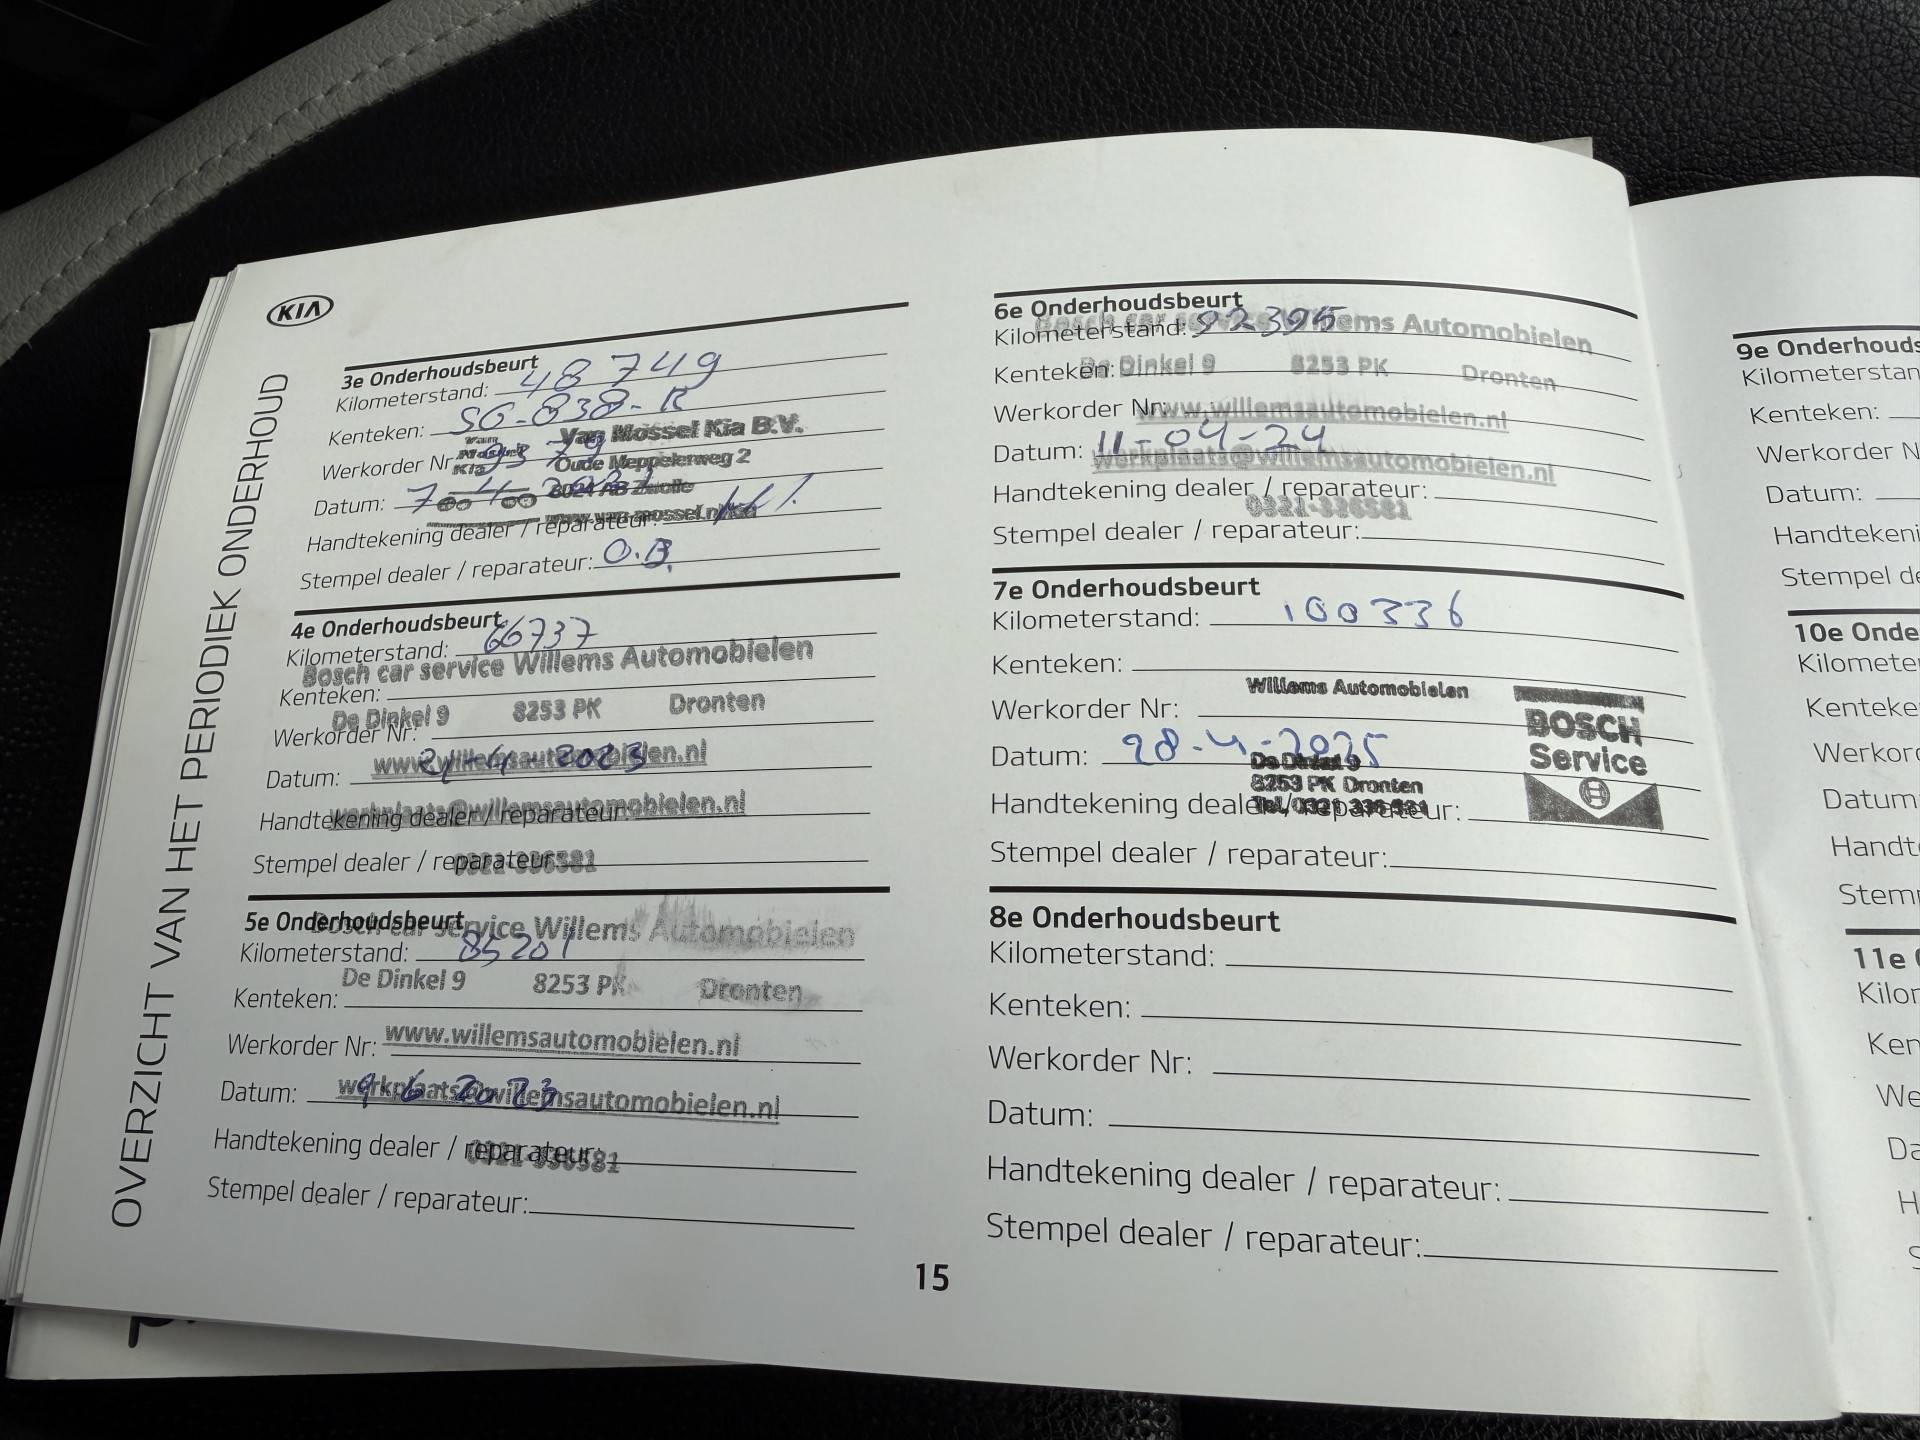 KIA
OVERZICHT VAN HET PERIODIEK ONDERHOUD
3e Onderhoudsbeurt
Kilometerstand: 48749
Kenteken: SG-838-R
Van Mossel Kia B.V.
Werkorder Nr
Oude Meppelerweg 2
Datum: 7
8024 AB Zwolle
www.van-mossel.nl/kia
Handtekening dealer / reparateur:
Stempel dealer / reparateur: O.B.
4e Onderhoudsbeurt
Kilometerstand: 66737
Bosch car service Willems Automobielen
Kenteken:
De Dinkel 9 8253 PK Dronten
Werkorder Nr:
www.willemsautomobielen.nl
Datum: 2023
werkplaats@willemsautomobielen.nl
Handtekening dealer / reparateur:
Stempel dealer / reparateur:
0321-336581
5e Onderhoudsbeurt
Bosch car service Willems Automobielen
Kilometerstand: 85201
De Dinkel 9 8253 PK Dronten
Kenteken:
Werkorder Nr: www.willemsautomobielen.nl
Datum: 9 6 2023
werkplaats@willemsautomobielen.nl
Handtekening dealer / reparateur:
0321-336581
Stempel dealer / reparateur:
6e Onderhoudsbeurt
Kilometerstand: 92395
Bosch car service Willems Automobielen
Kenteken:
De Dinkel 9 8253 PK Dronten
Werkorder Nr:
www.willemsautomobielen.nl
Datum: 11-04-24
werkplaats@willemsautomobielen.nl
Handtekening dealer / reparateur:
0321-336581
Stempel dealer / reparateur:
7e Onderhoudsbeurt
Kilometerstand: 100336
Kenteken:
Willems Automobielen
Werkorder Nr:
BOSCH
Service
Datum: 28-4-2025
De Dinkel 9
8253 PK Dronten
Tel. 0321 336 581
Handtekening dealer / reparateur:
Stempel dealer / reparateur:
8e Onderhoudsbeurt
Kilometerstand:
Kenteken:
Werkorder Nr:
Datum:
Handtekening dealer / reparateur:
Stempel dealer / reparateur:
15
9e Onderhouds
Kilometerstan
Kenteken:
Werkorder N
Datum:
Handtekeni
Stempel de
10e Onde
Kilomete
Kenteke
Werkor
Datum
Handt
Stem
11e
Kilo
Ken
We
Da
H
S